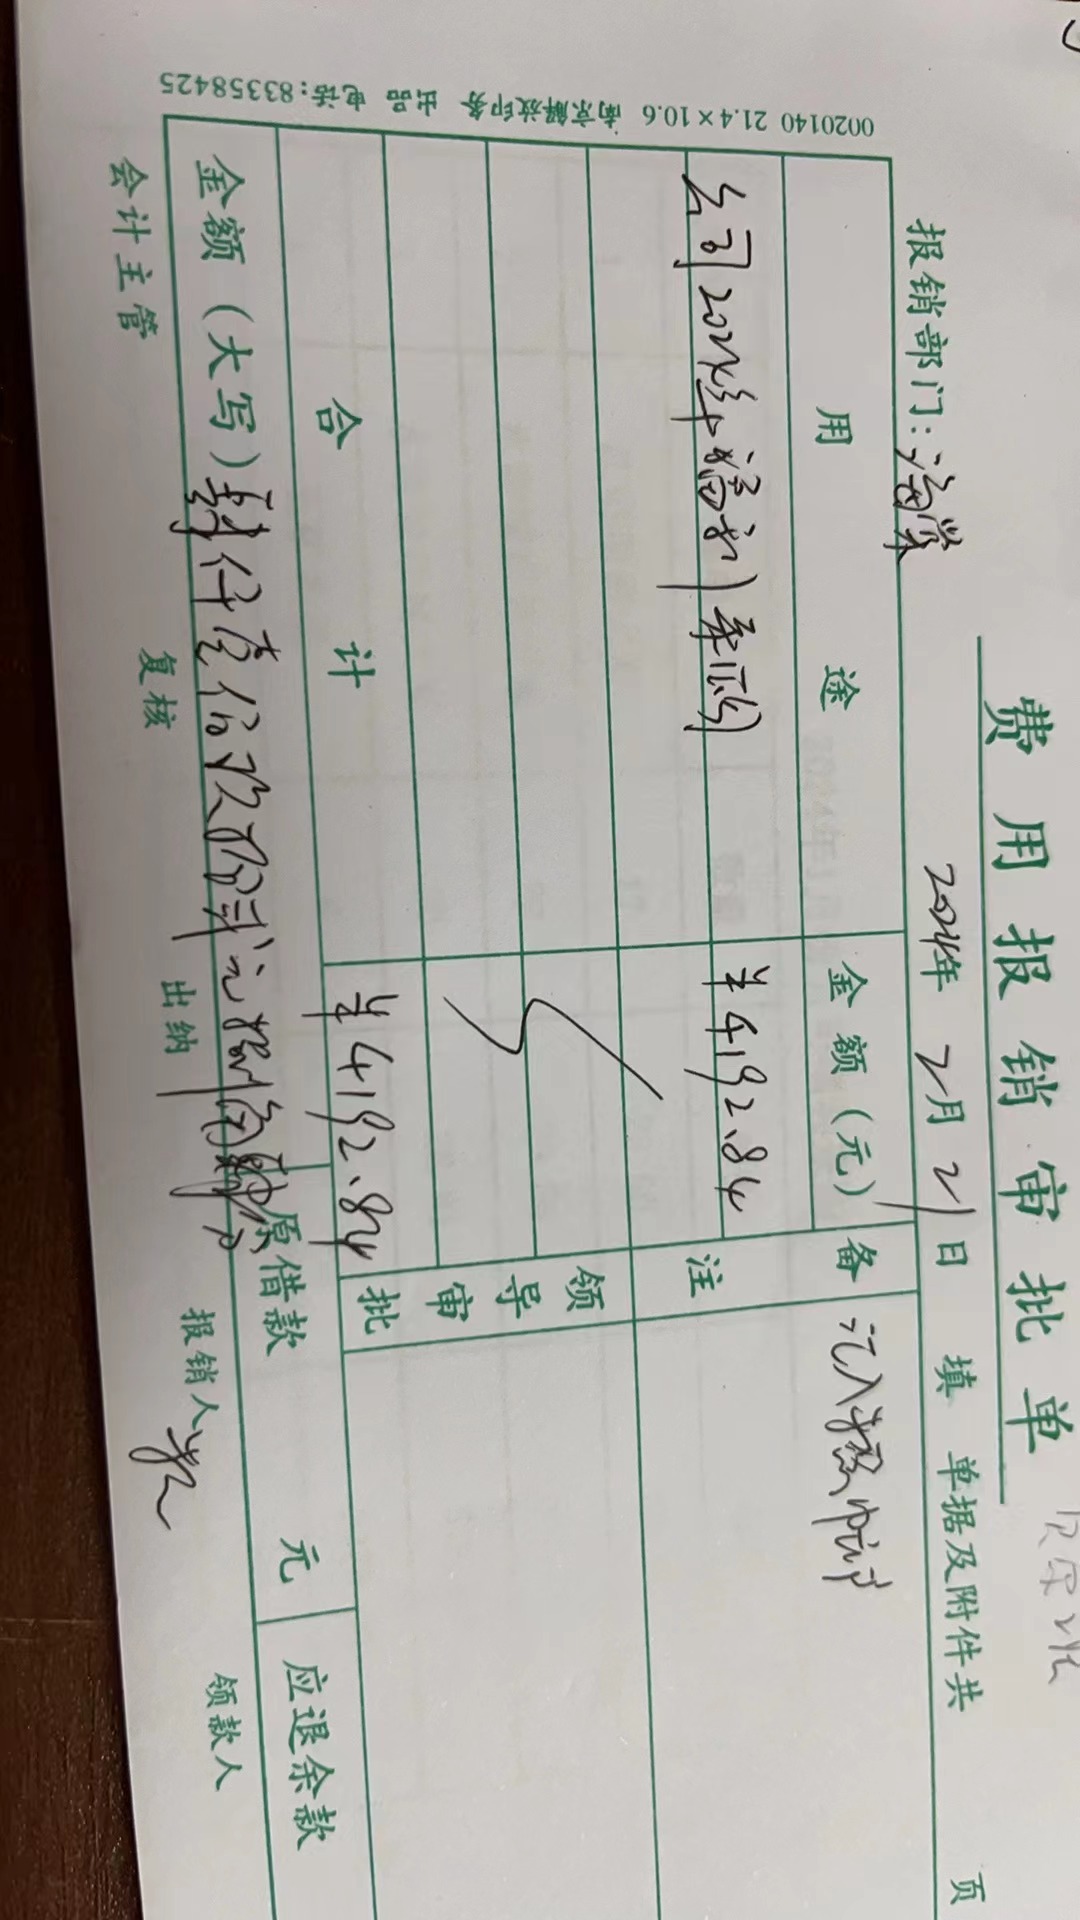 费用报销审批单
报销部门：海棠 2024年 2月 21日 填 单据及附件共 页
用途 金额（元） 备注
公司2024年 ¥4192.84
汇入
领导审批
合计 ¥4192.84
金额（大写）肆仟壹佰玖拾贰元捌角肆分 原借款 元 应退余款
会计主管 复核 出纳 报销人 领款人
0020140 21.4×10.6 南京解放印务 出品 电话:83358425